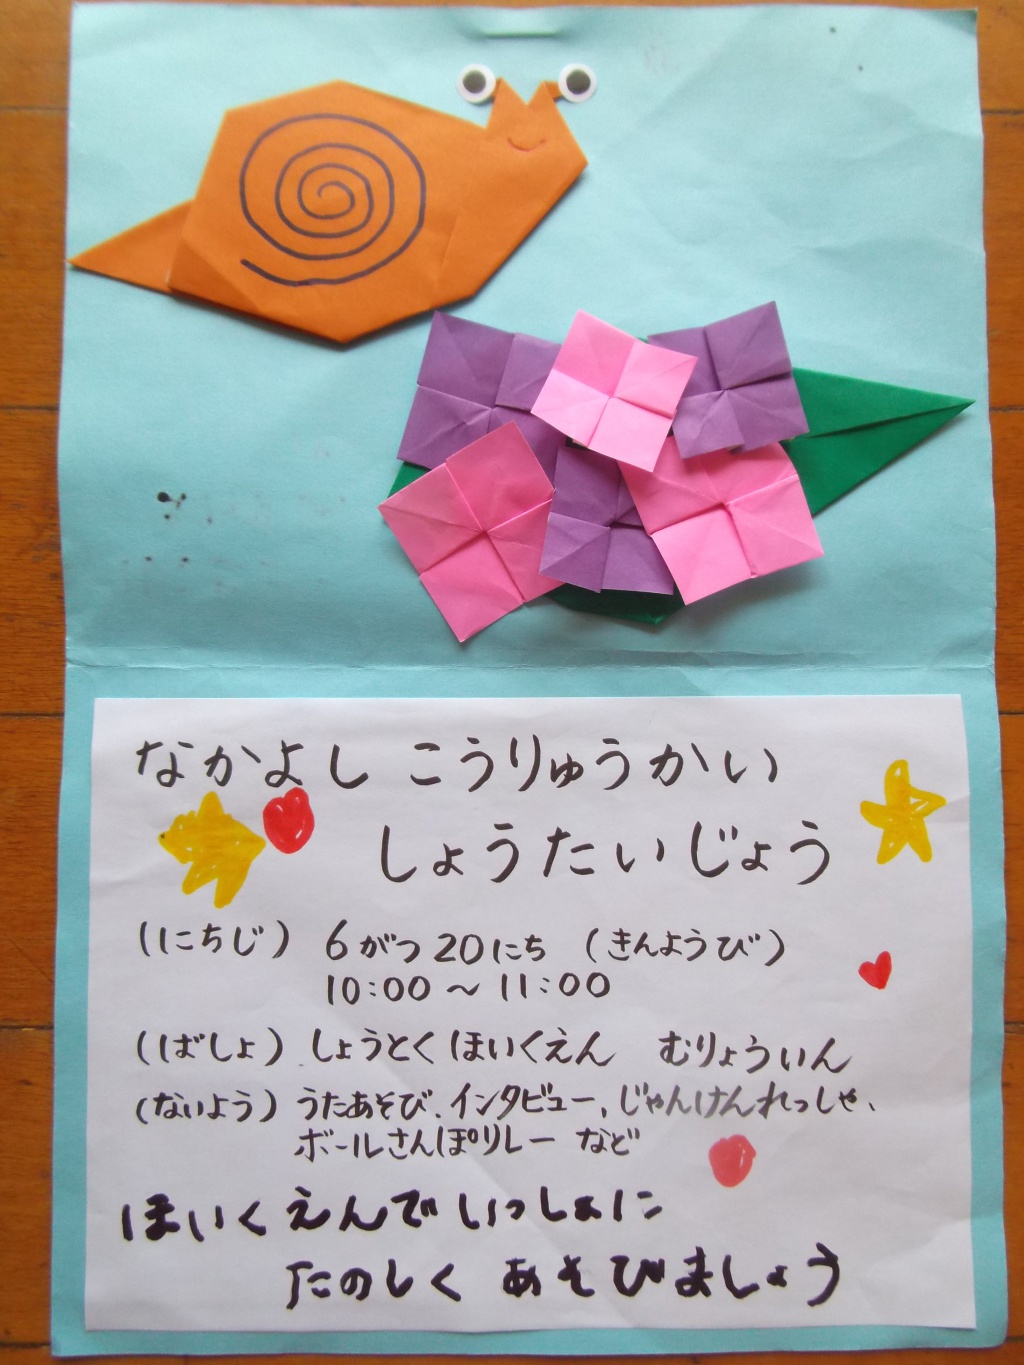 なかよし こうりゅうかい
しょうたいじょう
(にちじ) 6がつ20にち (きんようび)
10:00～11:00
(ばしょ) しょうとくほいくえん むりょういん
(ないよう) うたあそび、インタビュー、じゃんけんれっしゃ、
ボールさんぽリレー など
ほいくえんでいっしょに
たのしく あそびましょう